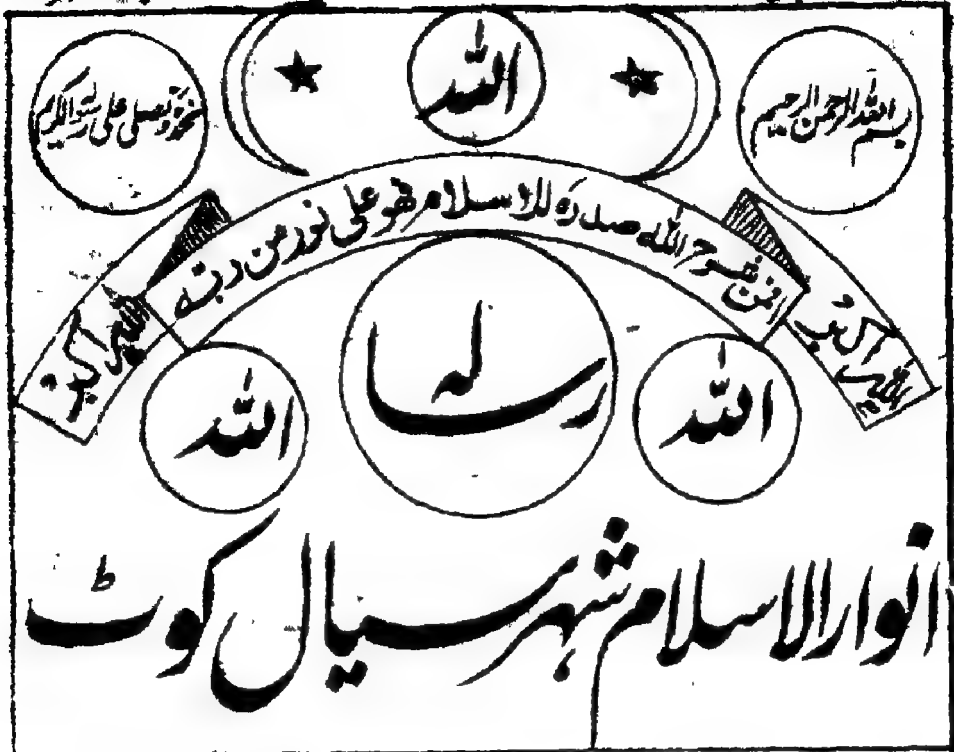 بسم الله الرحمن الرحيم
الله
نحمده ونصلی علی رسوله الکریم
الله اکبر
افمن شرح الله صدره للاسلام فهو علی نور من ربه
الله اکبر
الله
رسالہ
الله
انوارالاسلام شہر سیال کوٹ